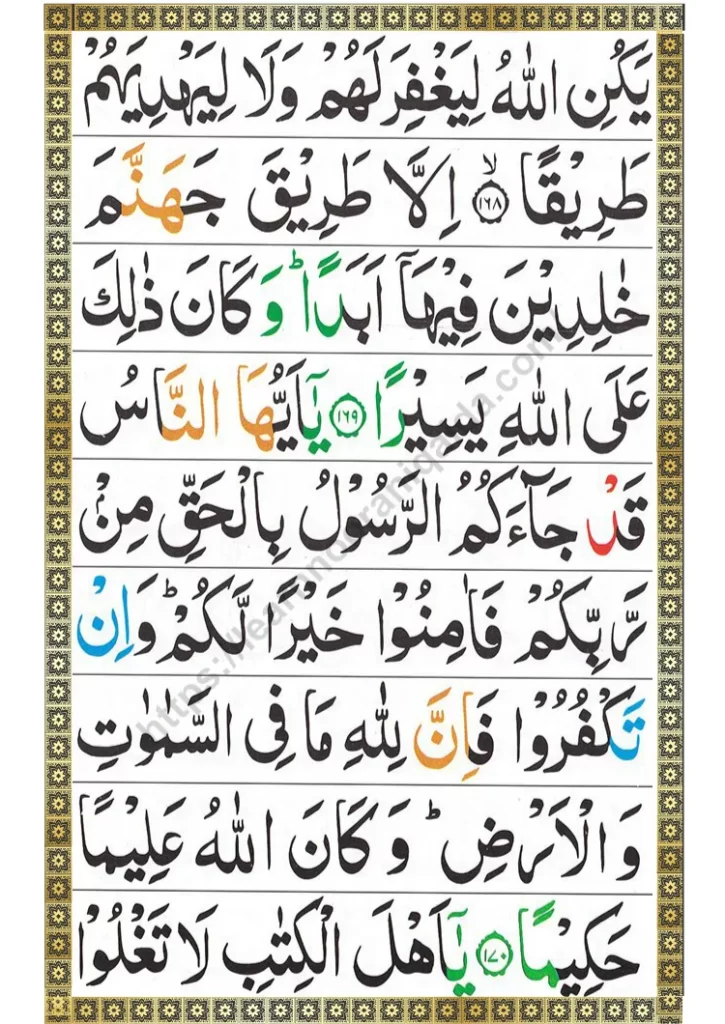 يَكُنِ اللّٰهُ لِيَغْفِرَ لَهُمْ وَلَا لِيَهْدِيَهُمْ
طَرِيْقًا ۙ‏﴿۱۶۸﴾ اِلَّا طَرِيْقَ جَهَنَّمَ
خٰلِدِيْنَ فِيْهَاۤ اَبَدًا ؕ وَكَانَ ذٰلِكَ
عَلَى اللّٰهِ يَسِيْرًا ﴿۱۶۹﴾ يٰۤاَيُّهَا النَّاسُ
قَدْ جَآءَكُمُ الرَّسُوْلُ بِالْحَقِّ مِنْ
رَّبِّكُمْ فَاٰمِنُوْا خَيْرًا لَّكُمْ ؕ وَاِنْ
تَكْفُرُوْا فَاِنَّ لِلّٰهِ مَا فِى السَّمٰوٰتِ
وَالْاَرْضِ ؕ وَكَانَ اللّٰهُ عَلِيْمًا
حَكِيْمًا ﴿۱۷۰﴾ يٰۤاَهْلَ الْكِتٰبِ لَا تَغْلُوْا